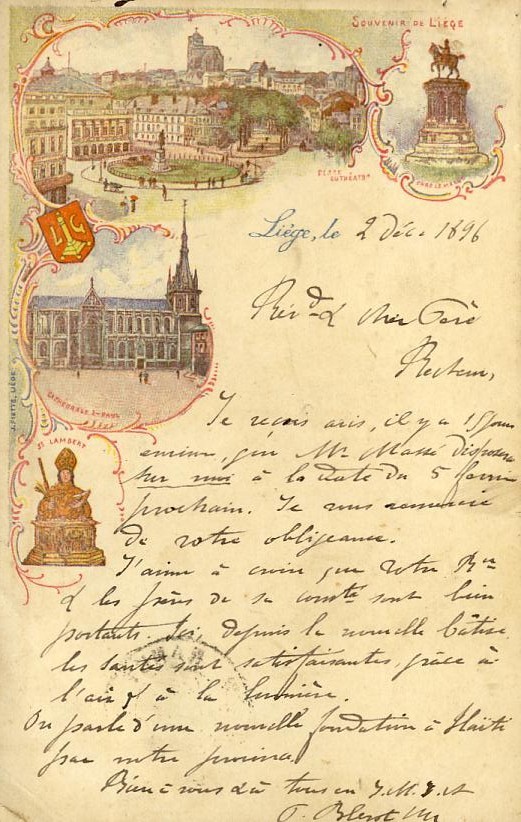 SOUVENIR DE LIÉGE
PLACE DU THÉATRE
CHARLEMAGNE
LIG
Liége, le 2 Déc. 1896
Révd & cher Père
Recteur,
CATHÉDRALE St PAUL
J. PIETTE, LIÉGE
St LAMBERT
Je reçois avis, il y a 15 jours
environ, que Mr Massé disposera
sur moi à la date du 5
prochain. Je vous remercie
de votre obligeance.
J'aime à croire que votre Rce
& les frères de sa comté sont bien
portants. Ici depuis la nouvelle bâtisse,
les santés sont satisfaisantes, grâce à
l'air & à la lumière.
On parle d'une nouvelle fondation à Haïti
par notre province.
Bien à vous & à tous en J.M.J.